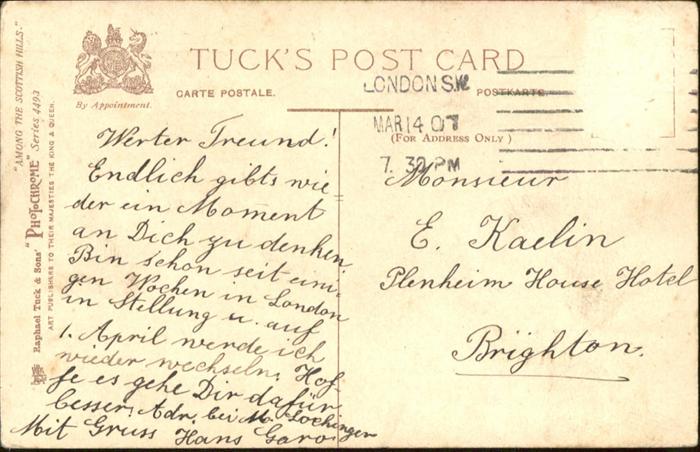 "AMONG THE SCOTTISH HILLS."
"PHOTOCHROME" Series 4493
Raphael Tuck & Sons'
ART PUBLISHERS TO THEIR MAJESTIES THE KING & QUEEN.
By Appointment.
TUCK'S POST CARD
CARTE POSTALE.
POSTKARTE.
(FOR ADDRESS ONLY)
LONDON S.W.
MAR 14 07
7. 30 PM
Werter Freund!
Endlich gibts wie
der ein Moment
an Dich zu denken.
Bin schon seit eini-
gen Wochen in London
in Stellung u. auf
1. April werde ich
wieder wechseln, Hof
fe es gehe Dir dafür
besser, Adr. bei M.
Mit Gruss Hans
Monsieur
E. Kaelin
Plenheim House Hotel
Brighton.